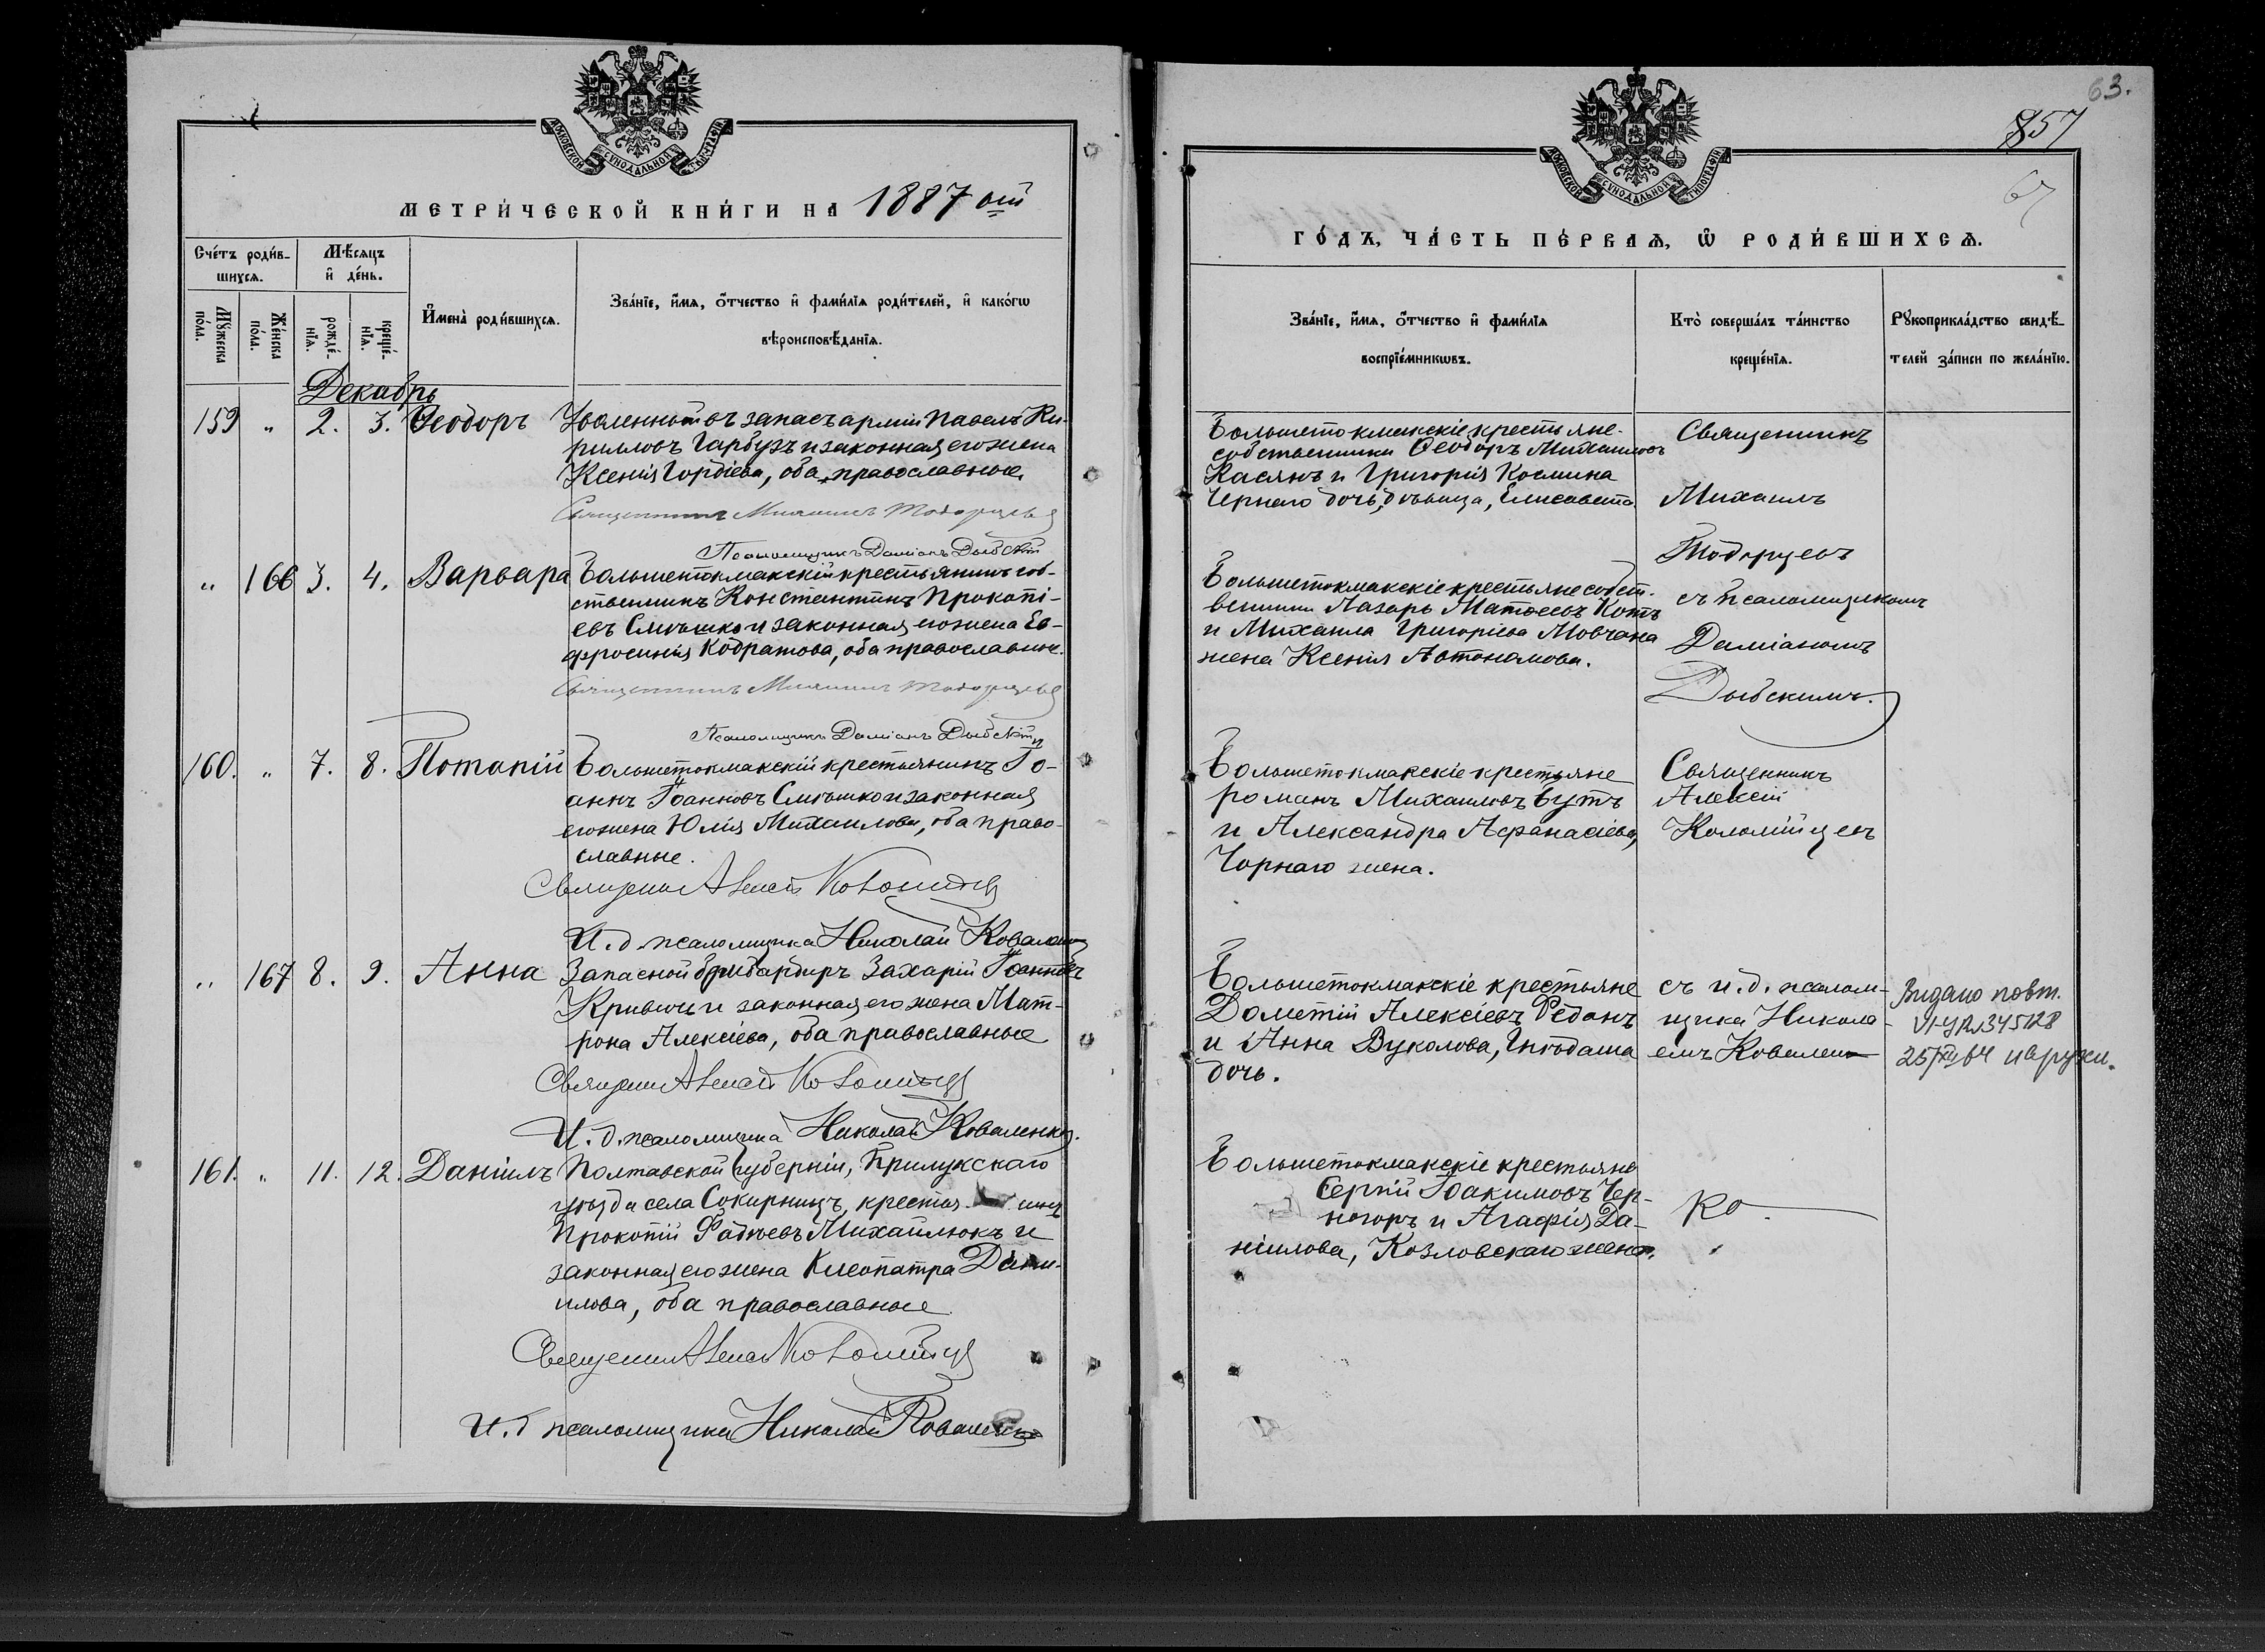 МОСКОВСКОЙ СѴНОДАЛЬНОЙ ТИПОГРАФІИ
МЕТРИ́ЧЕСКОЙ КНИ́ГИ НА 1887 ой
Сче́тъ роди́в-
шихсѧ.
Мѣ́сяцъ
и҆ де́нь.
Мꙋ́жеска
по́ла.
Же́нска
по́ла.
рожде́-
нїѧ.
креще́-
нїѧ.
И҆мена̀ роди́вшихсѧ.
Зва́нїе, и҆́мѧ, ѻ҆́тчество и҆ фами́лїѧ роди́телей, и҆ како́гѡ
вѣроисповѣ́данїѧ.
Декабрь
159 „ 2. 3. Ѳеодоръ Уволенный въ запасъ арміи Павелъ Ки-
рилловъ Гарбузъ и законная его жена
Ксенія Гордіева, оба православные
Священникъ Михаилъ Тодорцевъ
Псаломщикъ Даміанъ Дыбскій
„ 166 3. 4. Варвара Большетокмакскій крестьянинъ соб-
ственникъ Константинъ Прокопі-
евъ Смѣшко и законная его жена Ев-
фросинія Кодратова, оба православные.
Священникъ Михаилъ Тодорцевъ
Псаломщикъ Даміанъ Дыбскій
160. „ 7. 8. Потапій Большетокмакскій крестьянинъ Іо-
аннъ Іоанновъ Смѣшко и законная
его жена Юлія Михаилова, оба право-
славные.
Священникъ Алексій Коломійцевъ
И. д. псаломщика Николай Коваленко
„ 167 8. 9. Анна Запасной бомбардиръ Захарій Іоанновъ
Кривичъ и законная его жена Мат-
рона Алексіева, оба православные
Священникъ Алексій Коломійцевъ
И. д. псаломщика Николай Коваленко.
161. „ 11. 12. Даніилъ Полтавской губерніи, Прилукскаго
уѣзда села Сокирницъ, крестья- нинъ
Прокопій Фадѣевъ Михайлюкъ и
законная его жена Клеопатра Дани-
илова, оба православные
Священникъ Алексій Коломійцевъ
И. д псаломщика Николай Коваленко
63.
857
67
МОСКОВСКОЙ СѴНОДАЛЬНОЙ ТИПОГРАФІИ
ГО́ДЪ, ЧА́СТЬ ПЕ́РВАѦ, Ѽ РОДИ́ВШИХСѦ.
Зва́нїе, и҆́мѧ, ѻ҆́тчество и҆ фами́лїѧ
воспрїе́мникѡвъ.
Кто̀ соверша́лъ та́инство
креще́нїѧ.
Рꙋкоприкла́дство свидѣ́-
телей за́писи по жела́нїю.
Большетокмакскіе крестьяне-
собственники Ѳеодоръ Михаиловъ
Касянъ и Григорія Космина
Чернаго дочь, дѣвица, Елисавета
Священникъ
Михаилъ
Тодорцевъ
съ псаломщикомъ
Даміаномъ
Дыбскимъ.
Большетокмакскіе крестьяне собст-
венники Лазарь Матѳеевъ Котъ
и Михаила Григоріева Мовчана
жена Ксенія Автономова.
Большетокмакскіе крестьяне
Романъ Михаиловъ Бутъ
и Александра Аѳанасіева,
Чорнаго жена.
Священникъ
Алексій
Коломійцевъ
Большетокмакскіе крестьяне
Дометій Алексіевъ Рѣданъ
и Анна Вуколова, Гнѣдаша
дочь.
съ и. д. псалом-
щика Никола-
емъ Коваленко
Видано повт.
345128
Большетокмакскіе крестьяне
Сергій Іоакимовъ Чер-
ногоръ и Агаѳія Да-
ніилова, Козловскаго жена.